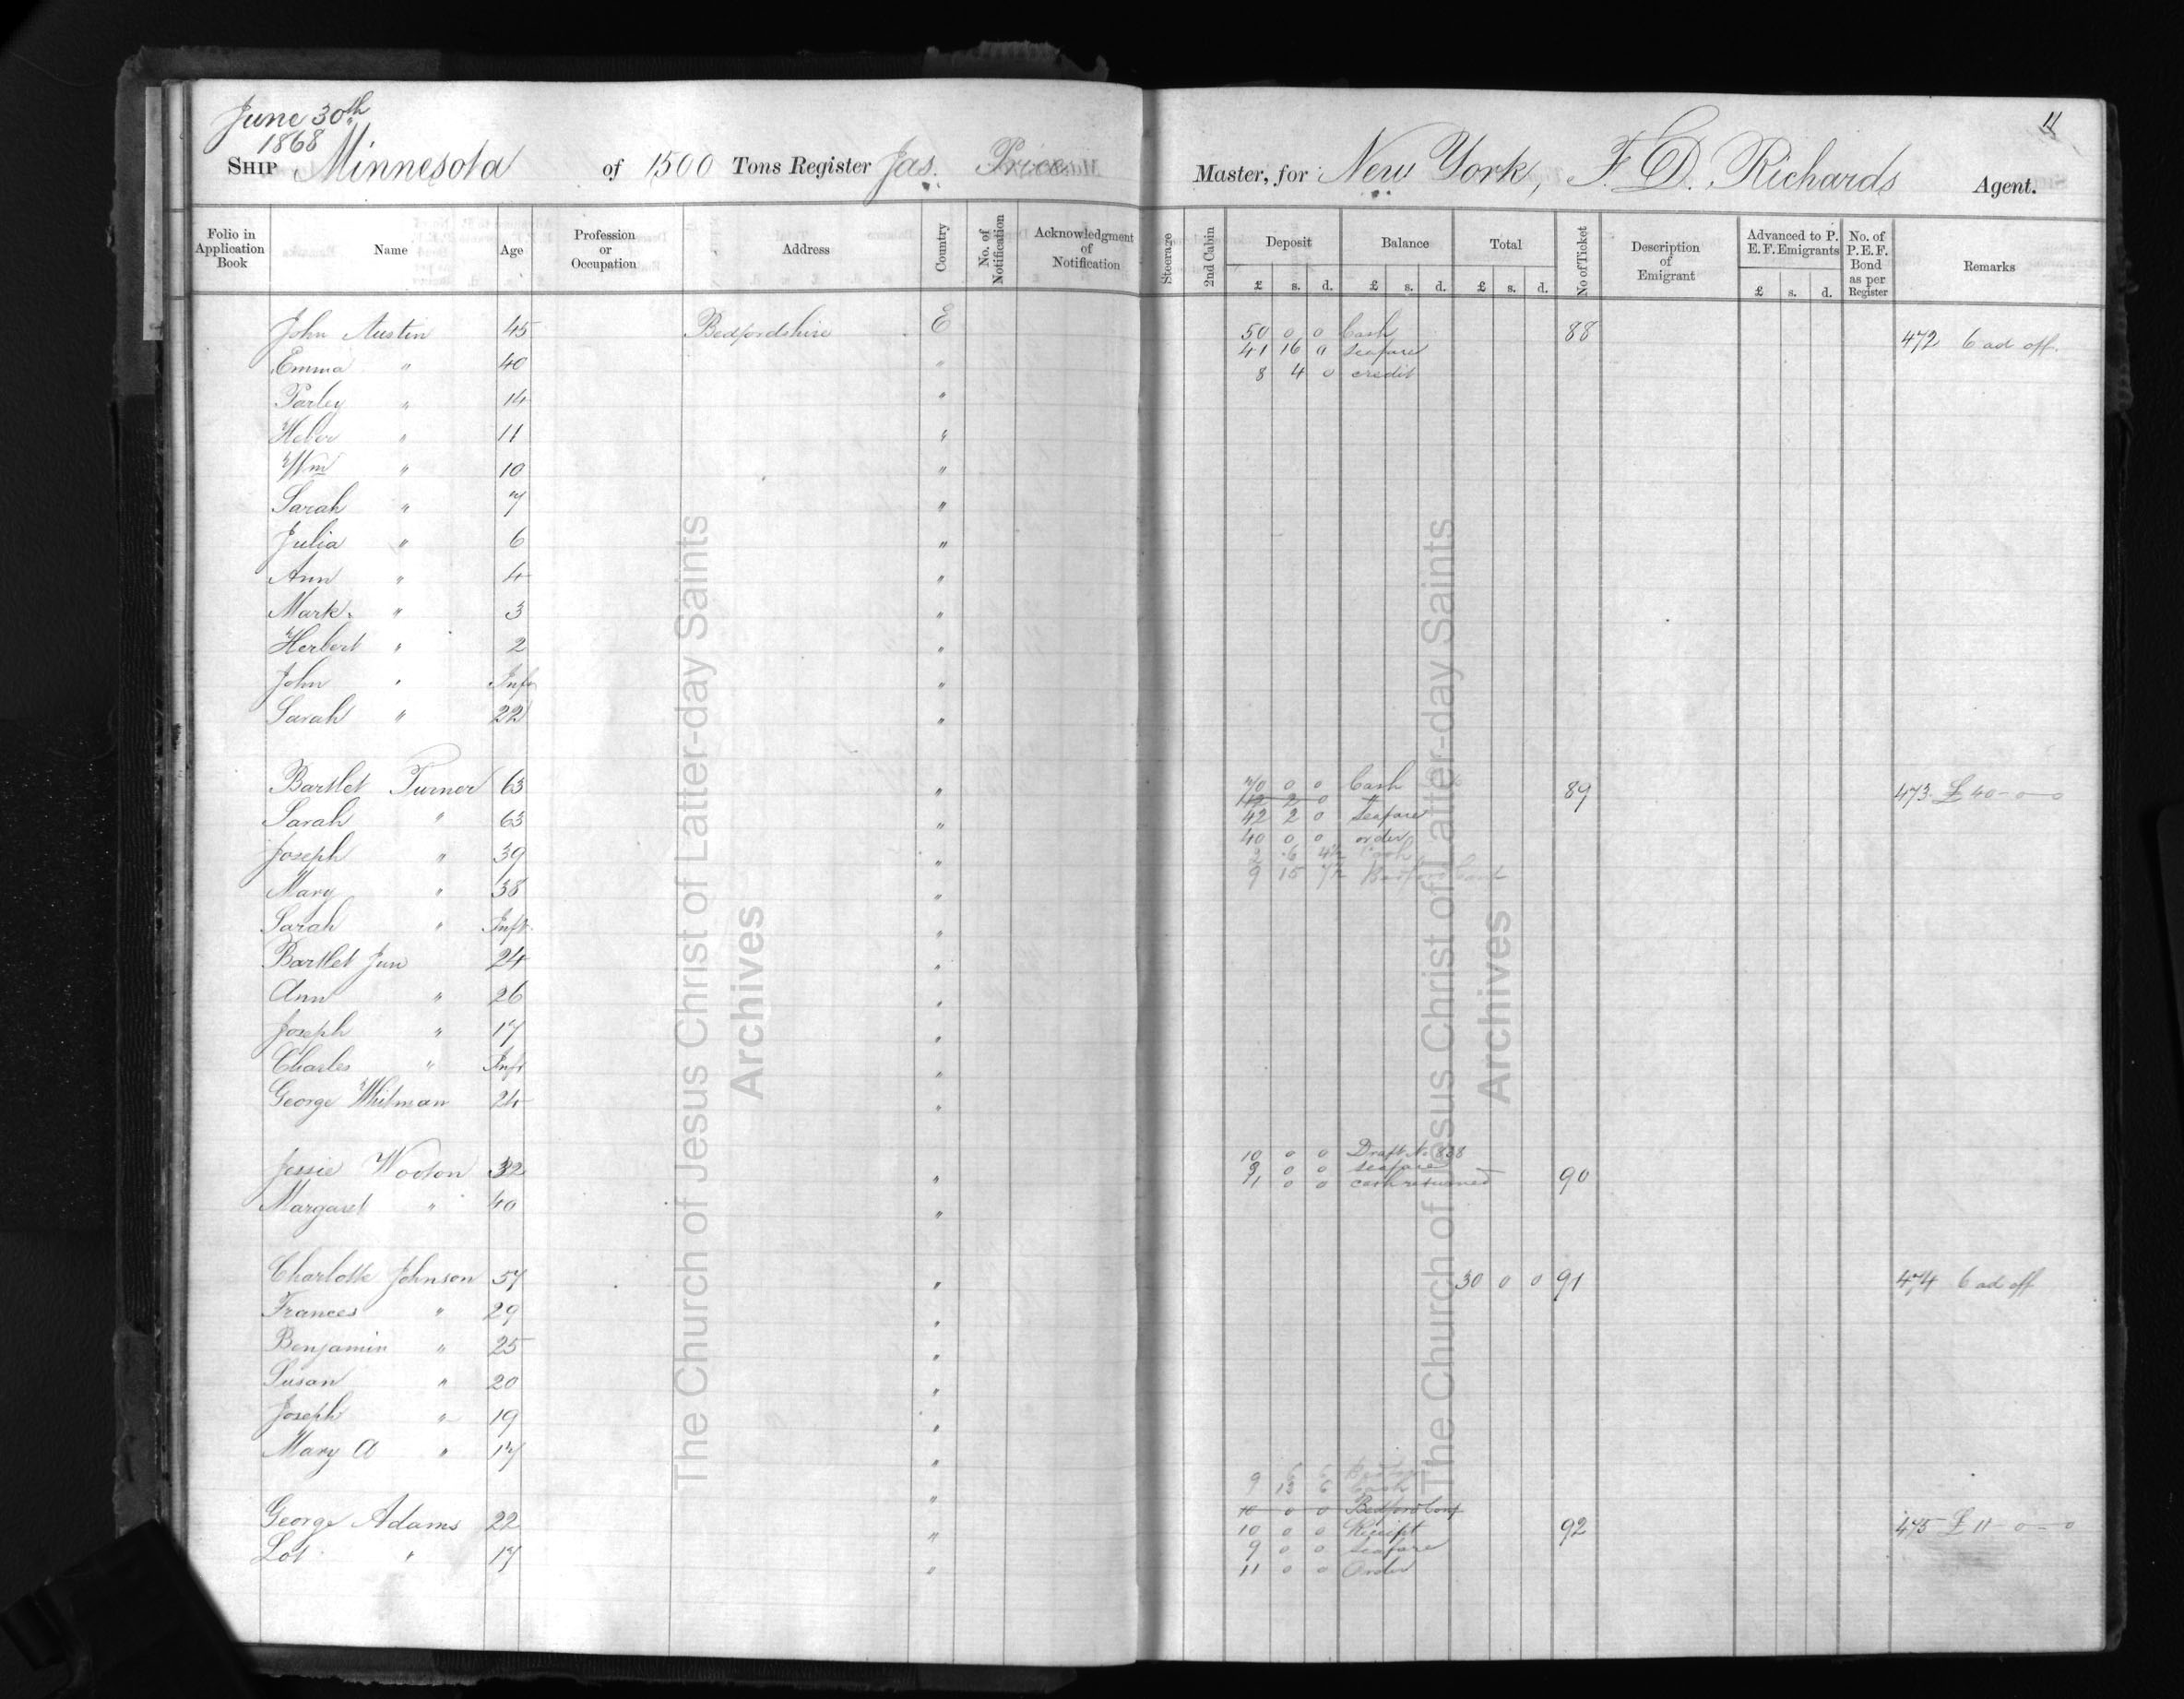 June 30th
1868
11
SHIP Minnesota of 1500 Tons Register Jas. Price Master, for New York, F. D. Richards Agent.
Folio in Application Book Name Age Profession or Occupation Address Country No. of Notification Acknowledgment of Notification Steerage 2nd Cabin Deposit £ s. d. Balance £ s. d. Total £ s. d. No of Ticket Description of Emigrant Advanced to P. E. F. Emigrants £ s. d. No. of P.E.F. Bond as per Register Remarks
John Austin 45 Bedfordshire E 50 0 0 Cash 88 472 6 ad off.
41 16 0 seafare
Emma " 40 " 8 4 0 credit
Parley " 14 "
Heber " 11 "
Wm " 10 "
Sarah " 7 "
Julia " 6 "
Ann " 4 "
Mark " 3 "
Herbert " 2 "
John " Inft "
Sarah " 22 "
Bartlet Turner 63 " 70 0 0 Cash 89 473 £ 40-0-0
42 2 0 "
Sarah " 63 " 42 2 0 seafare
40 0 0 order
Joseph " 39 " 2 6 4½ Cash
9 15 7½ Bedford Conf
Mary " 38 "
Sarah " Inft "
Bartlet Jun 24 "
Ann " 26 "
Joseph " 17 "
Charles " Inft "
George Whitman 24 "
10 0 0 Draft No 838
Jessie Wooton 32 " 9 0 0 seafare 90
1 0 0 cash returned
Margaret " 40 "
Charlotte Johnson 57 " 30 0 0 91 474 6 ad off
Frances " 29 "
Benjamin " 25 "
Susan " 20 "
Joseph " 19 "
Mary A " 17 "
9 13 6 Cash
" 10 0 0 Bedford Conf
George Adams 22 " 10 0 0 Receipt 92 475 £ 11-0-0
9 0 0 seafare
Lot " 17 " 11 0 0 Order
The Church of Jesus Christ of Latter-day Saints
Archives
The Church of Jesus Christ of Latter-day Saints
Archives